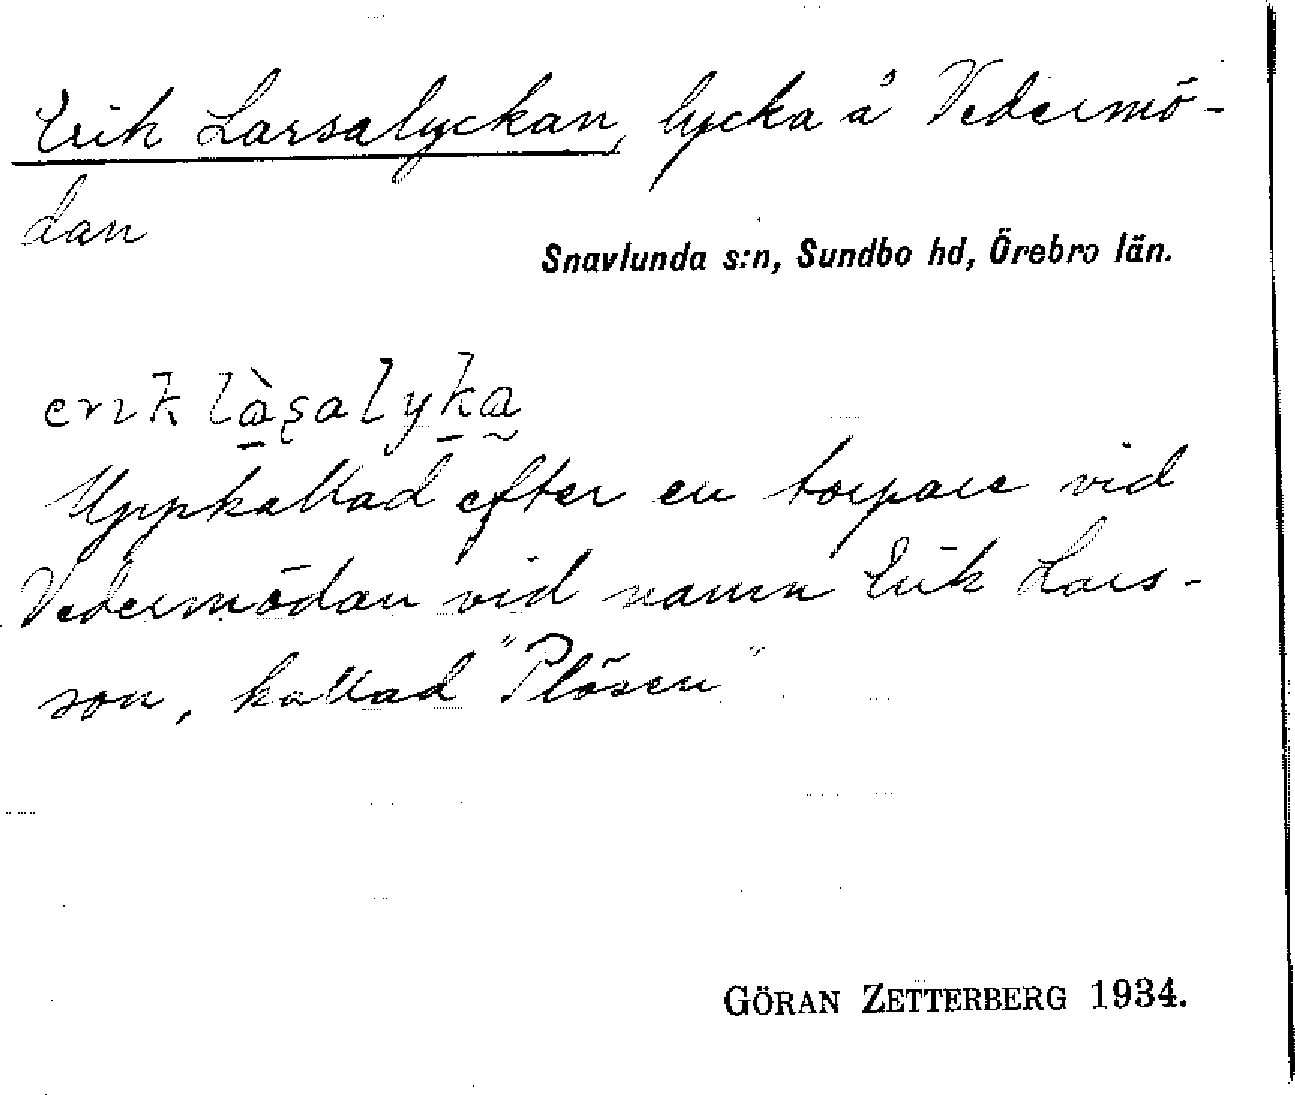 Erik Larsalyckan, lycka å Vedermö-
dan
Snavlunda s:n, Sundbo hd, Örebro län.
erik là̱ʂalyḵa̰
Uppkallad efter en torpare vid
Vedermödan vid namn Erik Lars-
son, kallad "Plösen"
GÖRAN ZETTERBERG 1934.